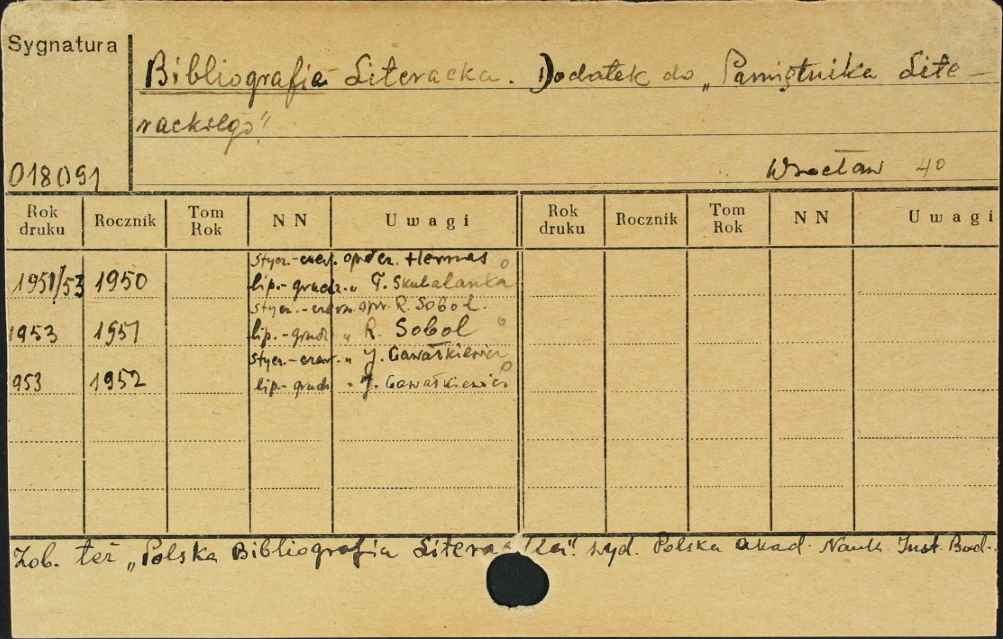 Sygnatura
Bibliografia Literacka. Dodatek do „Pamiętnika Lite-
rackiego"
018091
Wrocław 40
Rok druku Rocznik Tom Rok NN Uwagi Rok druku Rocznik Tom Rok NN Uwagi
stycz.-czerw. Hermas
1951/53 1950 lip.-grudz. „ T. Skubalanka
stycz.-czerw. opr. R. Sobol.
1953 1951 lip.-grudz „ R. Sobol
stycz.-czerw. „ J. Gawałkiewicz
953 1952 lip.-grudz „ J. Gawałkiewicz
Zob. też „Polska Bibliografia Literacka". wyd. Polska Akad. Nauk Inst. Bad.